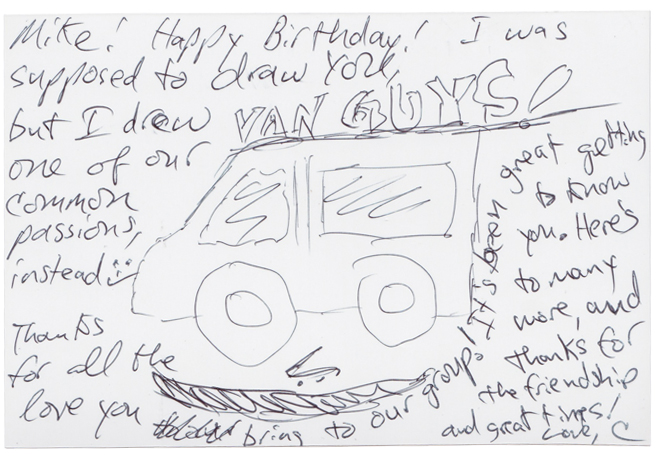 Mike! Happy Birthday! I was
supposed to draw YOU,
but I drew
one of our
common
passions,
instead
VAN GUYS!
Thanks
for all the
love you bring to our group! It's been great getting
to know
you. Here's
to many
more, and
thanks for
the friendship
and great times!
Love, C